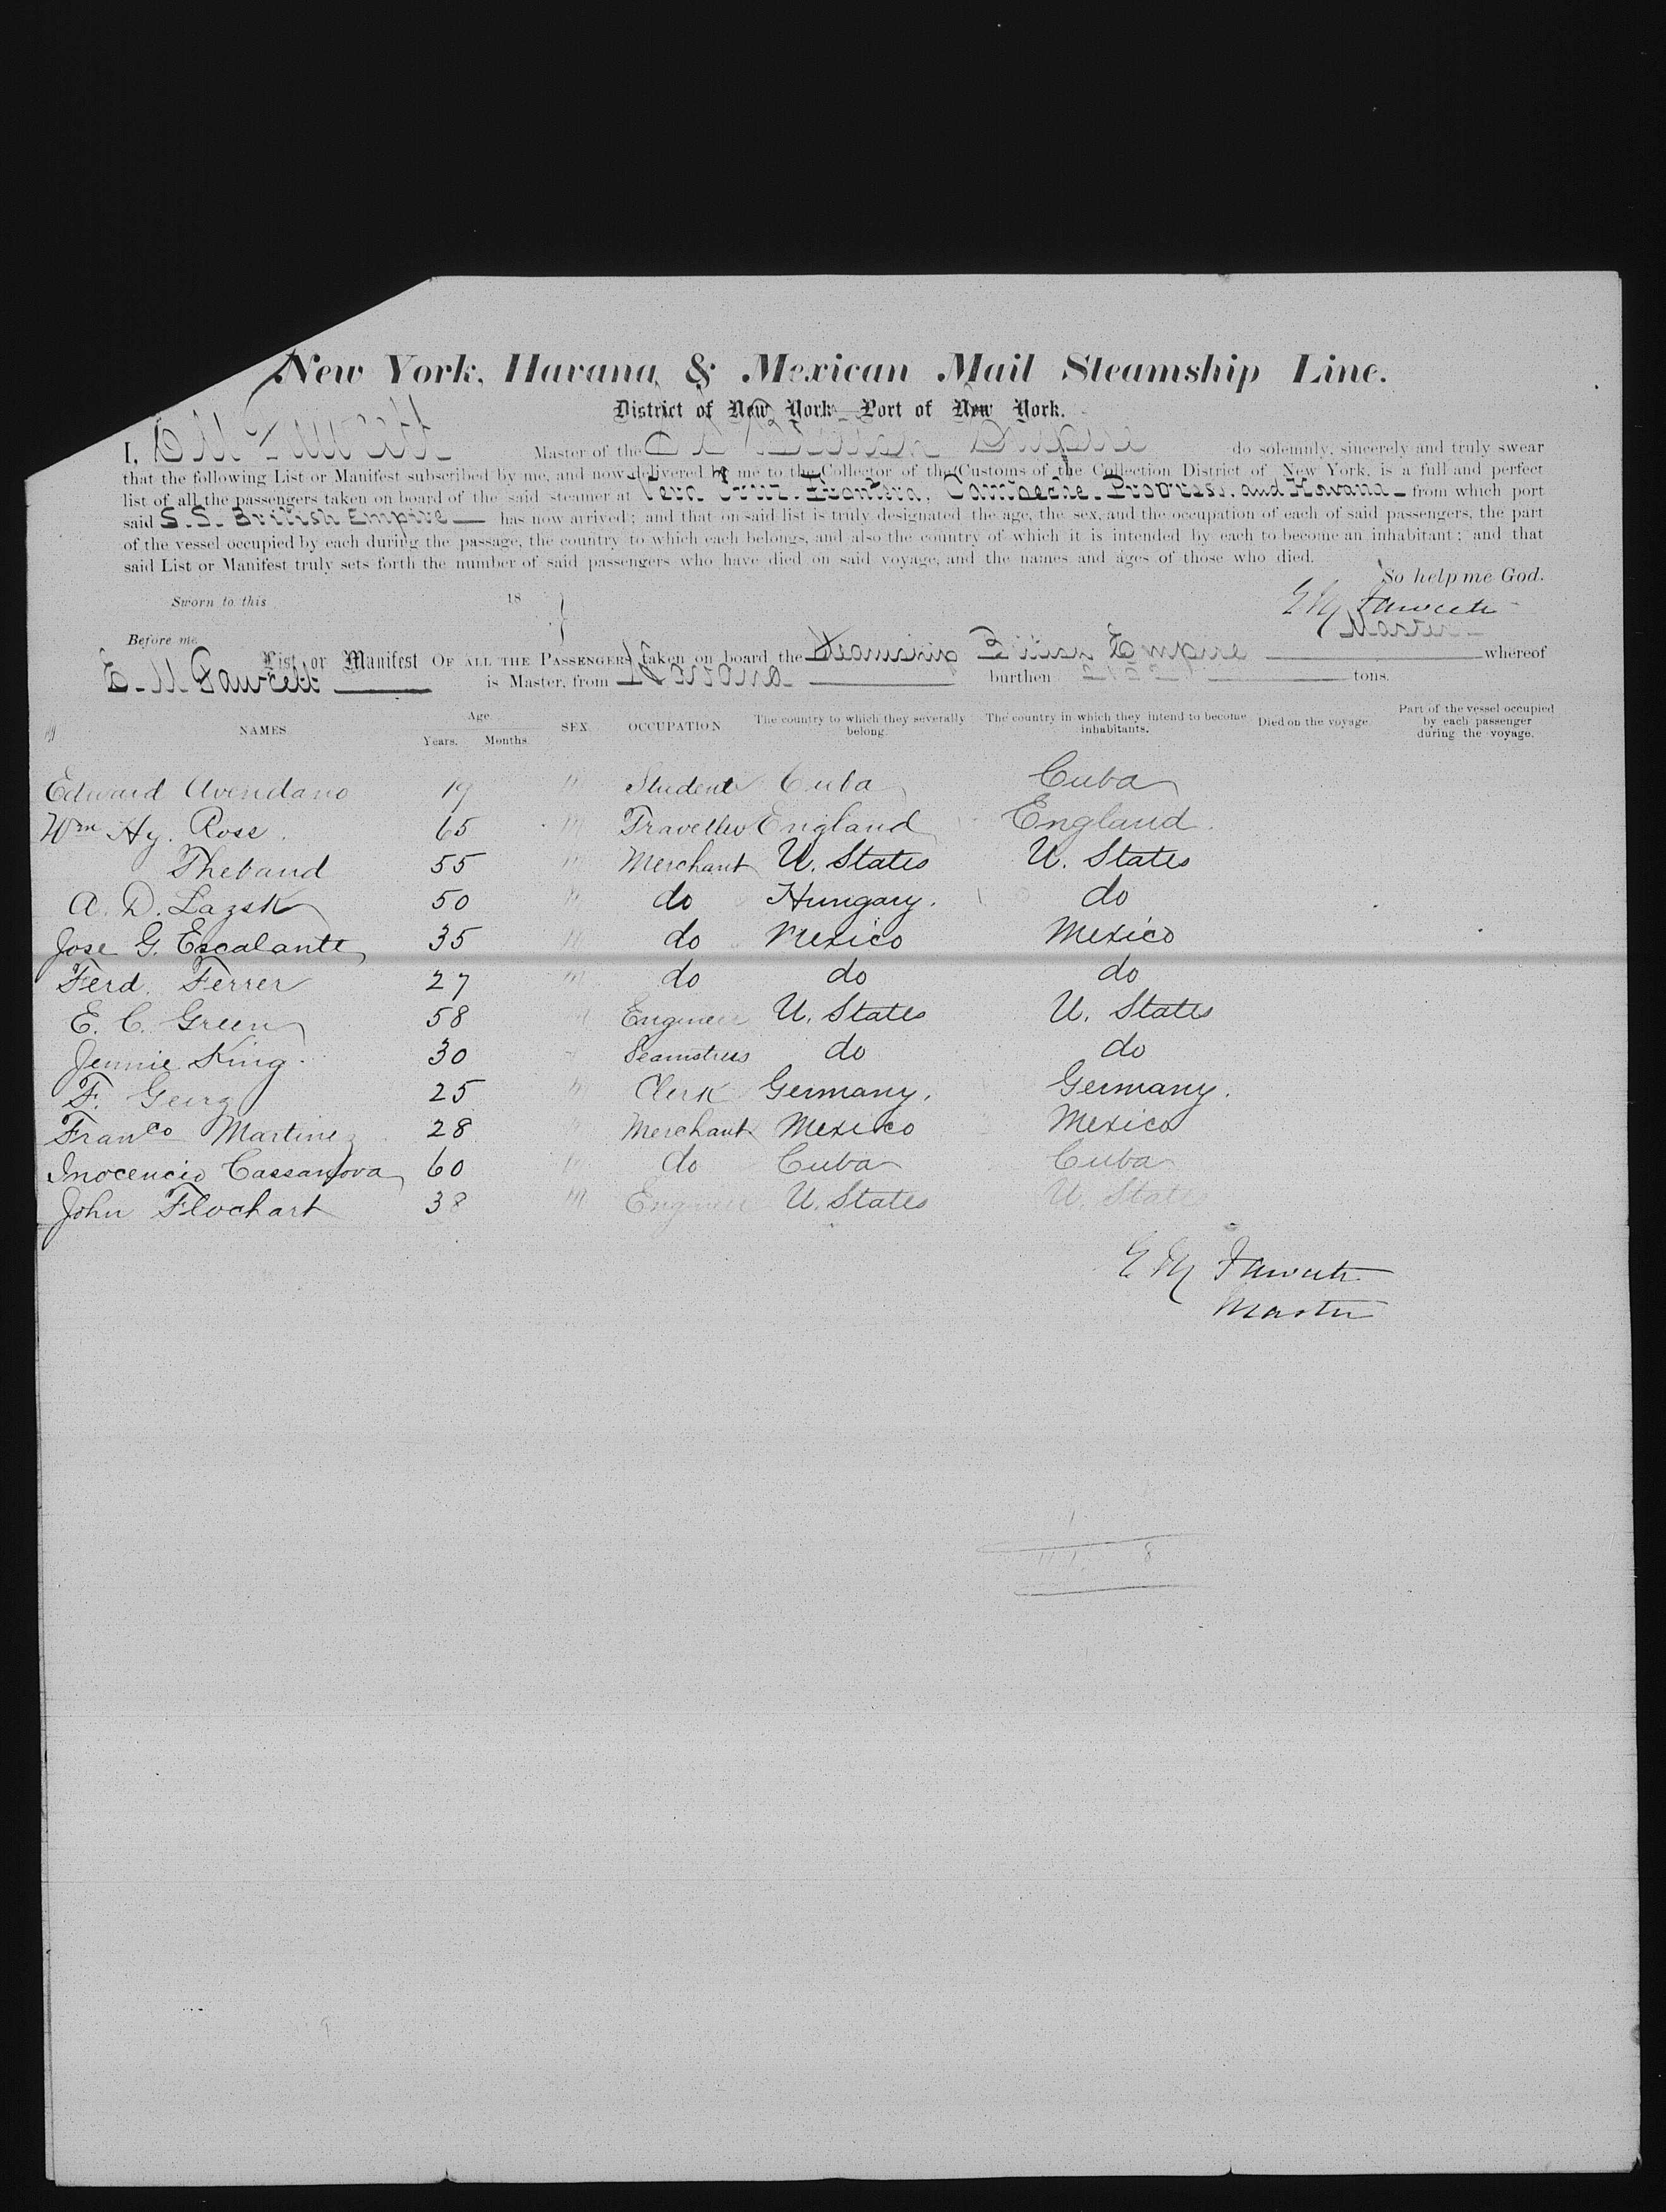 New York, Havana & Mexican Mail Steamship Line.
District of New York Port of New York.
I, E M Fawcett Master of the S S British Empire do solemnly, sincerely and truly swear
that the following List or Manifest subscribed by me, and now delivered by me to the Collector of the Customs of the Collection District of New York, is a full and perfect
list of all the passengers taken on board of the said steamer at Vera Cruz, Frontera, Campeche, Progreso, and Havana from which port
said S.S. British Empire has now arrived; and that on said list is truly designated the age, the sex, and the occupation of each of said passengers, the part
of the vessel occupied by each during the passage, the country to which each belongs, and also the country of which it is intended by each to become an inhabitant; and that
said List or Manifest truly sets forth the number of said passengers who have died on said voyage, and the names and ages of those who died.
So help me God.
Sworn to this 18
E M Fawcett
Master
Before me
List or Manifest OF ALL THE PASSENGERS taken on board the Steamship British Empire whereof
E. M. Fawcett is Master, from Havana burthen tons.
NAMES Age Years. Months. SEX OCCUPATION The country to which they severally belong. The country in which they intend to become inhabitants. Died on the voyage Part of the vessel occupied by each passenger during the voyage.
Edward Avendano 19 " Student Cuba Cuba
Wm Hy. Rose 65 " Traveller England England
Thebaud 55 " Merchant U. States U. States
A. D. Lazsk 50 " do Hungary. do
Jose G. Escalante 35 " do Mexico Mexico
Ferd. Ferrer 27 " do do do
E. C. Green 58 " Engineer U. States U. States
Jennie King 30 Seamstress do do
F. Georg 25 " Clerk Germany. Germany.
Franco Martinez 28 " Merchant Mexico Mexico
Inocencio Cassanova 60 " do Cuba Cuba
John Flochart 38 " Engineer U. States U. State
E M Fawcett
Master